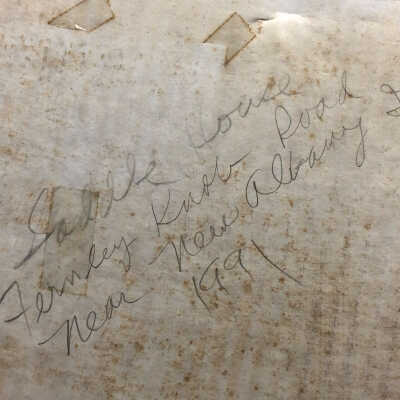 Saddle House
Fernley Knob Road
Near New Albany I
1991